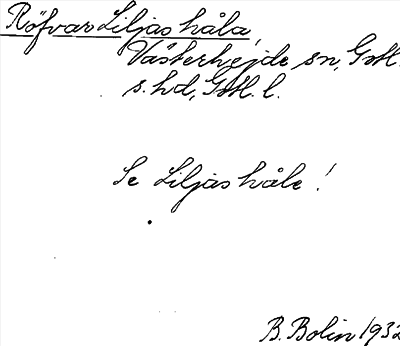 Röfvar Liljas håla,
Västerhejde sn, Gotl.
s. hd, Gotl. l.
Se Liljas håle!
B. Bolin 1932